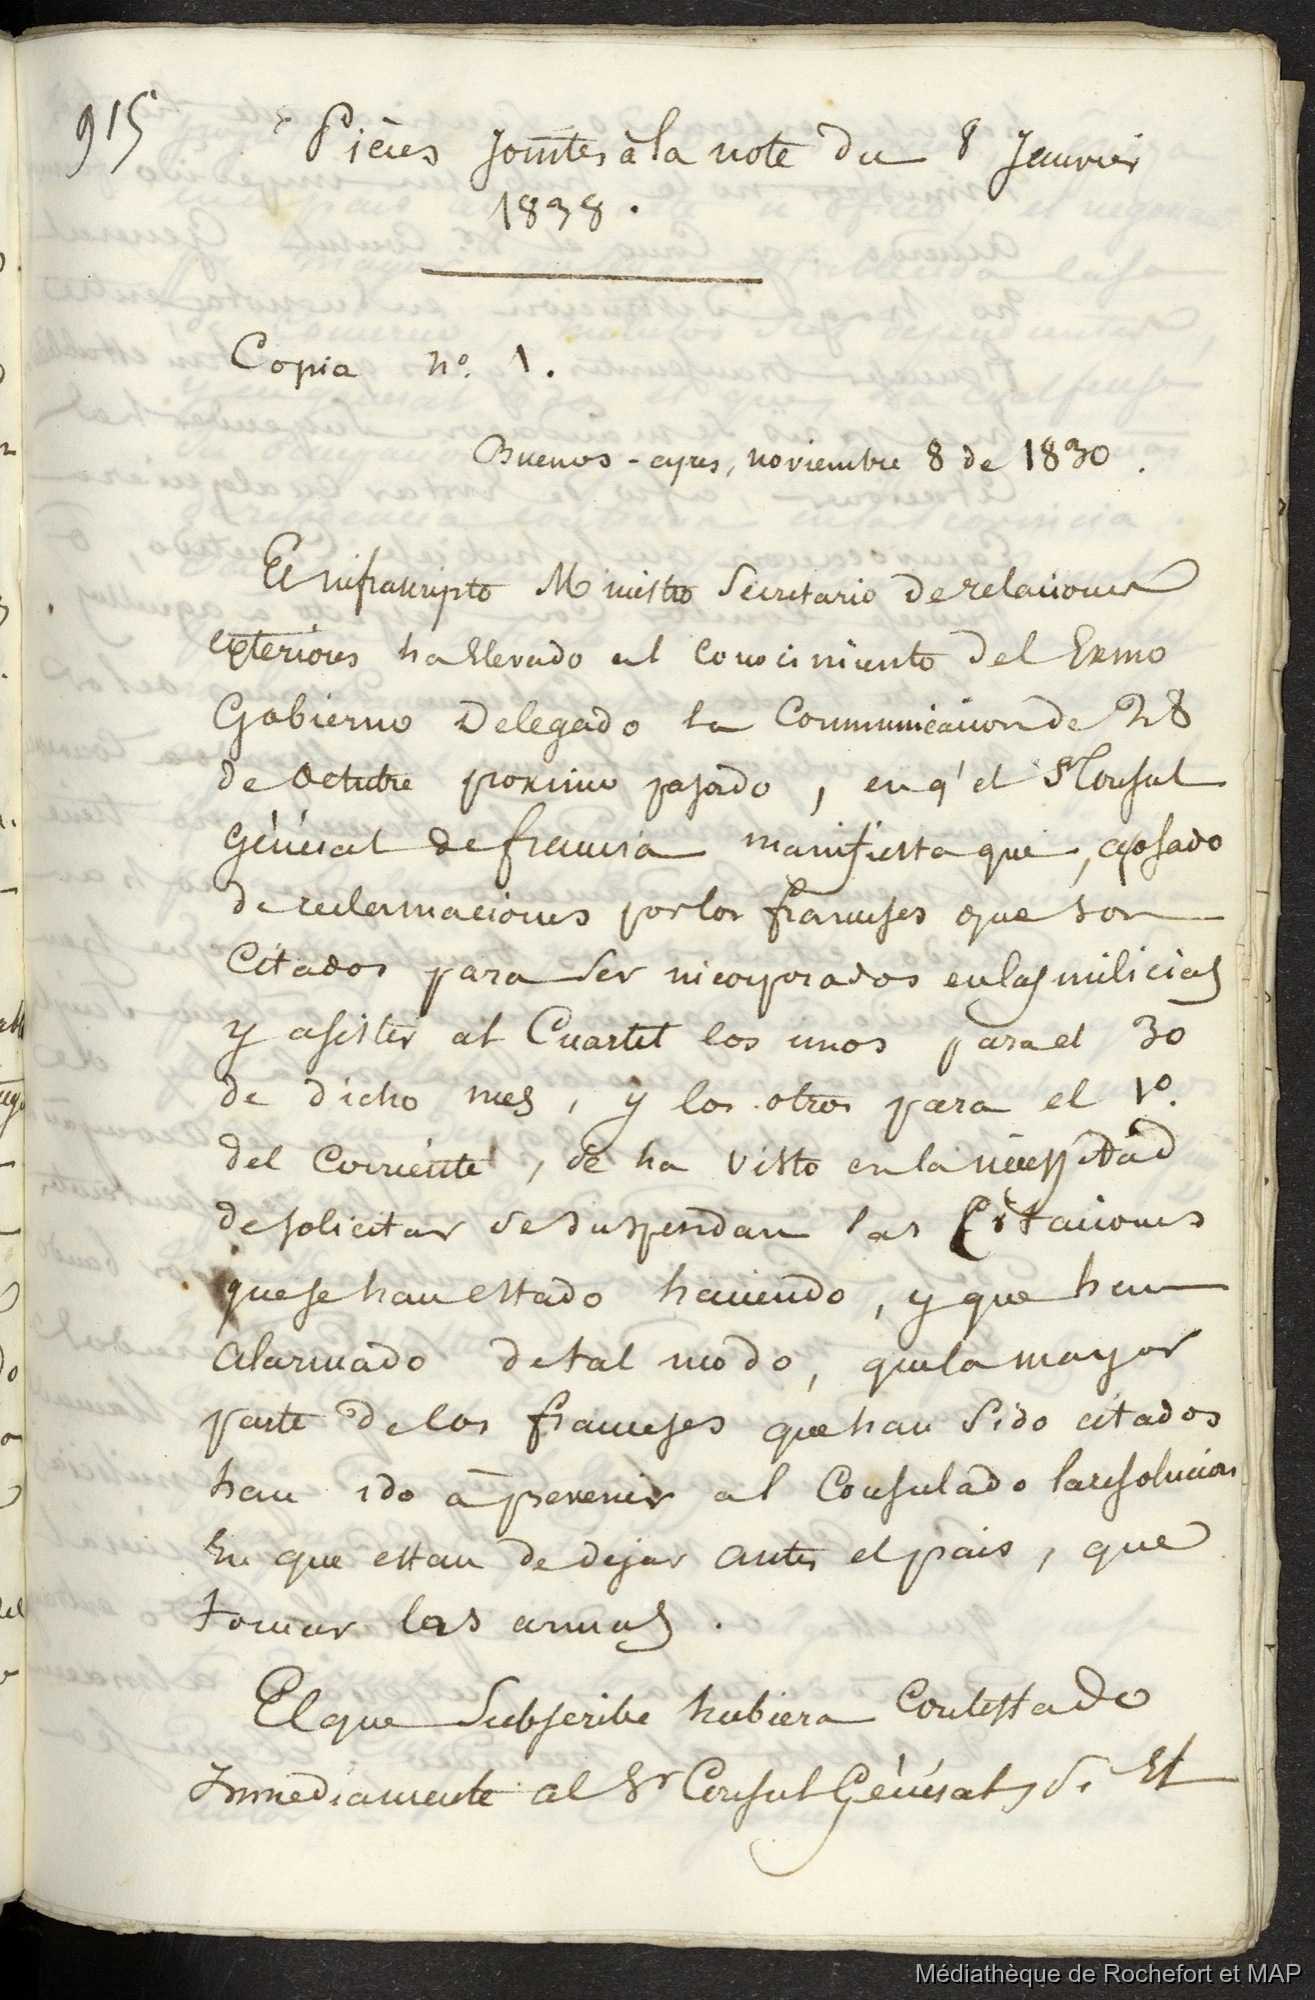 915
Pièces Jointes à la note du 8 Janvier
1838.
Copia nº. 1.
Buenos-ayres, noviembre 8 de 1830.
El infrascripto Ministro Secretario de relaciones
exteriores ha llevado al conocimiento del Exmo
Gobierno Delegado la Communicacion de 28
de Octubre proximo pasado, en q' el Sr Consul
Général de francia manifiesta que, acosado
de reclamaciones por los franceses que son
Citados para ser incorporados en las milicias
y asister al Cuartel los unos para el 30
de dicho mes, y los otros para el 1º.
del Corriente, se ha visto en la necessitad
de solicitar se suspendan las Citaciones
que se han estado haciendo, y que han
alarmado de tal modo, que la mayor
parte de los franceses que han Sido citados
han ido à prevenir al Consulado la resolucion
En que estan de dejar antes el pais, que
tomar las armas.
El que Subscribe hubiera Contestado
Inmediamente al Sr Consul Général, Si El
Médiathèque de Rochefort et MAP